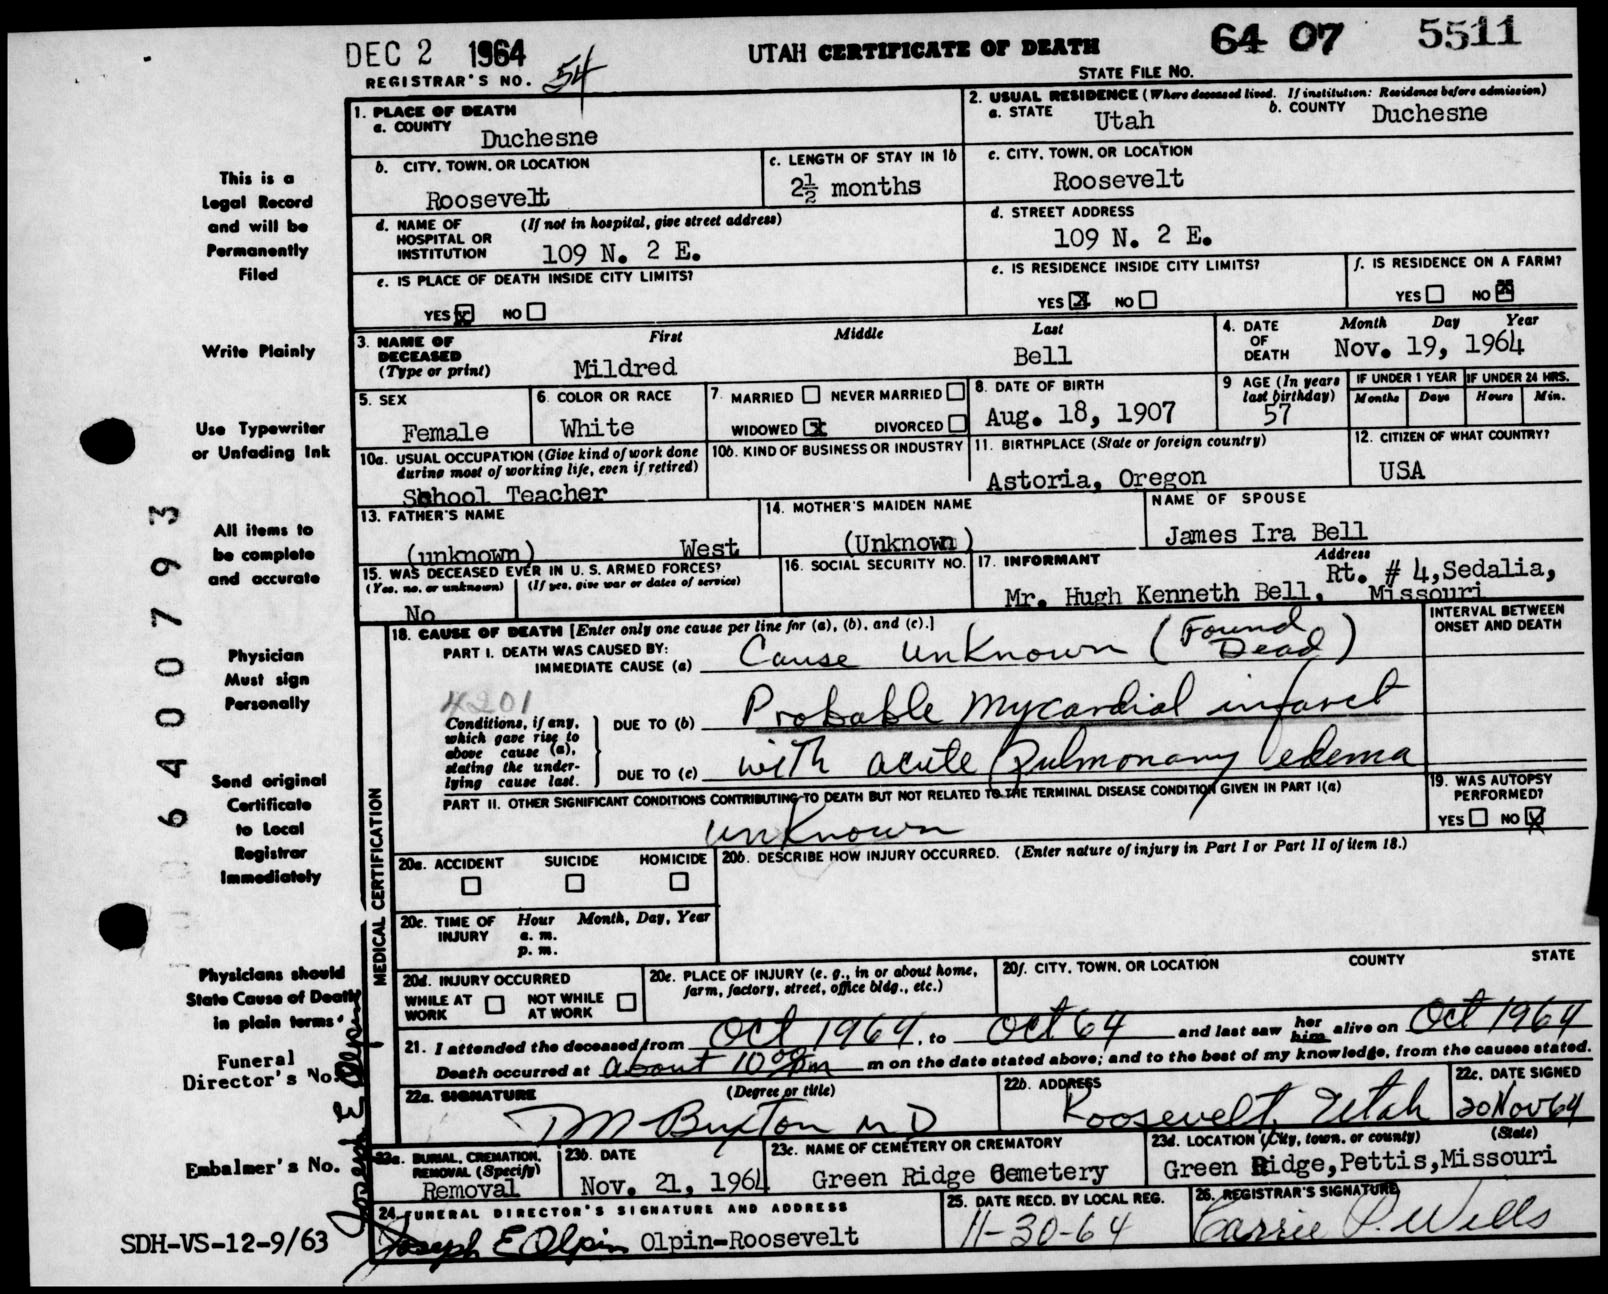 DEC 2 1964
UTAH CERTIFICATE OF DEATH
64 07 5511
REGISTRAR'S NO. 54
STATE FILE NO.
1. PLACE OF DEATH
a. COUNTY
Duchesne
2. USUAL RESIDENCE (Where deceased lived. If institution: Residence before admission)
a. STATE Utah
b. COUNTY Duchesne
b. CITY, TOWN, OR LOCATION
Roosevelt
c. LENGTH OF STAY IN 1b
2½ months
c. CITY, TOWN, OR LOCATION
Roosevelt
d. NAME OF HOSPITAL OR INSTITUTION (If not in hospital, give street address)
109 N. 2 E.
d. STREET ADDRESS
109 N. 2 E.
e. IS PLACE OF DEATH INSIDE CITY LIMITS?
YES X NO
e. IS RESIDENCE INSIDE CITY LIMITS?
YES X NO
f. IS RESIDENCE ON A FARM?
YES NO X
3. NAME OF DECEASED (Type or print)
First Middle Last
Mildred Bell
4. DATE OF DEATH
Month Day Year
Nov. 19, 1964
5. SEX
Female
6. COLOR OR RACE
White
7. MARRIED NEVER MARRIED
WIDOWED X DIVORCED
8. DATE OF BIRTH
Aug. 18, 1907
9 AGE (In years last birthday)
57
IF UNDER 1 YEAR
Months Days
IF UNDER 24 HRS.
Hours Min.
10a. USUAL OCCUPATION (Give kind of work done during most of working life, even if retired)
School Teacher
10b. KIND OF BUSINESS OR INDUSTRY
11. BIRTHPLACE (State or foreign country)
Astoria, Oregon
12. CITIZEN OF WHAT COUNTRY?
USA
13. FATHER'S NAME
(unknown) West
14. MOTHER'S MAIDEN NAME
(Unknown)
NAME OF SPOUSE
James Ira Bell
15. WAS DECEASED EVER IN U. S. ARMED FORCES?
(Yes, no, or unknown) (If yes, give war or dates of service)
No
16. SOCIAL SECURITY NO.
17. INFORMANT Address
Mr. Hugh Kenneth Bell, Rt. # 4, Sedalia, Missouri
MEDICAL CERTIFICATION
18. CAUSE OF DEATH [Enter only one cause per line for (a), (b), and (c).]
INTERVAL BETWEEN ONSET AND DEATH
PART I. DEATH WAS CAUSED BY:
IMMEDIATE CAUSE (a) Cause unknown (Found Dead)
4201
Conditions, if any, which gave rise to above cause (a), stating the underlying cause last.
DUE TO (b) Probable Mycardial infarct
DUE TO (c) with acute pulmonary edema
PART II. OTHER SIGNIFICANT CONDITIONS CONTRIBUTING TO DEATH BUT NOT RELATED TO THE TERMINAL DISEASE CONDITION GIVEN IN PART I(a)
unknown
19. WAS AUTOPSY PERFORMED?
YES NO X
20a. ACCIDENT SUICIDE HOMICIDE
20b. DESCRIBE HOW INJURY OCCURRED. (Enter nature of injury in Part I or Part II of item 18.)
20c. TIME OF INJURY
Hour Month, Day, Year
a. m.
p. m.
20d. INJURY OCCURRED
WHILE AT WORK NOT WHILE AT WORK
20e. PLACE OF INJURY (e. g., in or about home, farm, factory, street, office bldg., etc.)
20f. CITY, TOWN, OR LOCATION COUNTY STATE
21. I attended the deceased from Oct 1964, to Oct 64 and last saw her him alive on Oct 1964
Death occurred at about 10 00 pm m on the date stated above; and to the best of my knowledge, from the causes stated.
22a. SIGNATURE (Degree or title)
Buxton MD
22b. ADDRESS
Roosevelt, Utah
22c. DATE SIGNED
20 Nov 64
23a. BURIAL, CREMATION, REMOVAL (Specify)
Removal
23b. DATE
Nov. 21, 1964
23c. NAME OF CEMETERY OR CREMATORY
Green Ridge Cemetery
23d. LOCATION (City, town, or county) (State)
Green Ridge, Pettis, Missouri
24. FUNERAL DIRECTOR'S SIGNATURE AND ADDRESS
Joseph E Olpin Olpin-Roosevelt
25. DATE RECD. BY LOCAL REG.
11-30-64
26. REGISTRAR'S SIGNATURE
Carrie P. Wells
This is a
Legal Record
and will be
Permanently
Filed
Write Plainly
Use Typewriter
or Unfading Ink
All items to
be complete
and accurate
Physician
Must sign
Personally
Send original
Certificate
to Local
Registrar
Immediately
Physicians should
State Cause of Death
in plain terms
Funeral
Director's No.
Embalmer's No.
Joseph E Olpin
6400793
SDH-VS-12-9/63